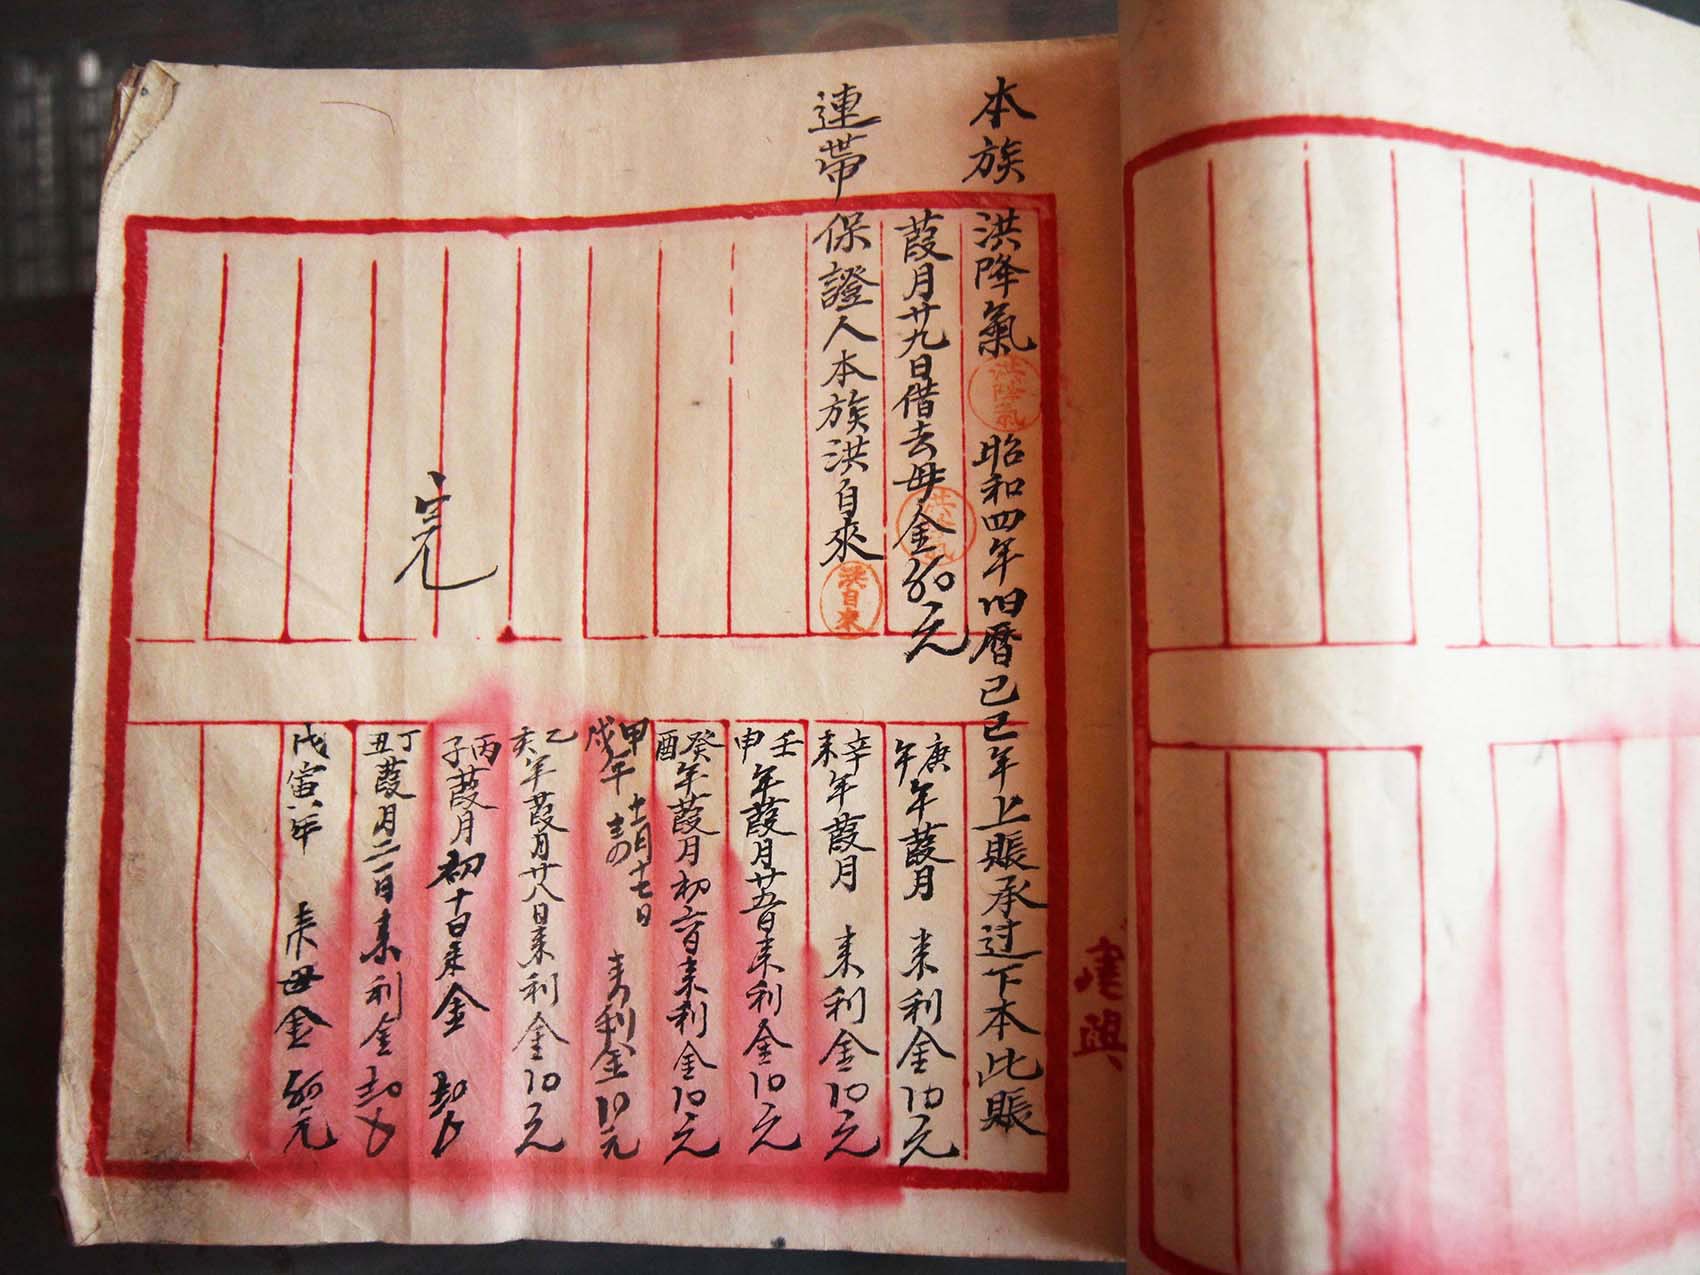 本族洪降氣 洪降氣 昭和四年旧暦己巳年上賬承过下本此賬
葭月廿九日借去母金60元
連帯保證人本族洪自來 洪自來
庚午年葭月 来利金10元
辛未年葭月 来利金10元
壬申年葭月廿五日来利金10元
癸酉年葭月初六日来利金10元
甲戌年十二月十七日 来利金10元
乙亥年葭月廿八日来利金10元
丙子葭月初十日来金
丁丑葭月二日来利金
戊寅年 来母金60元
完
建興